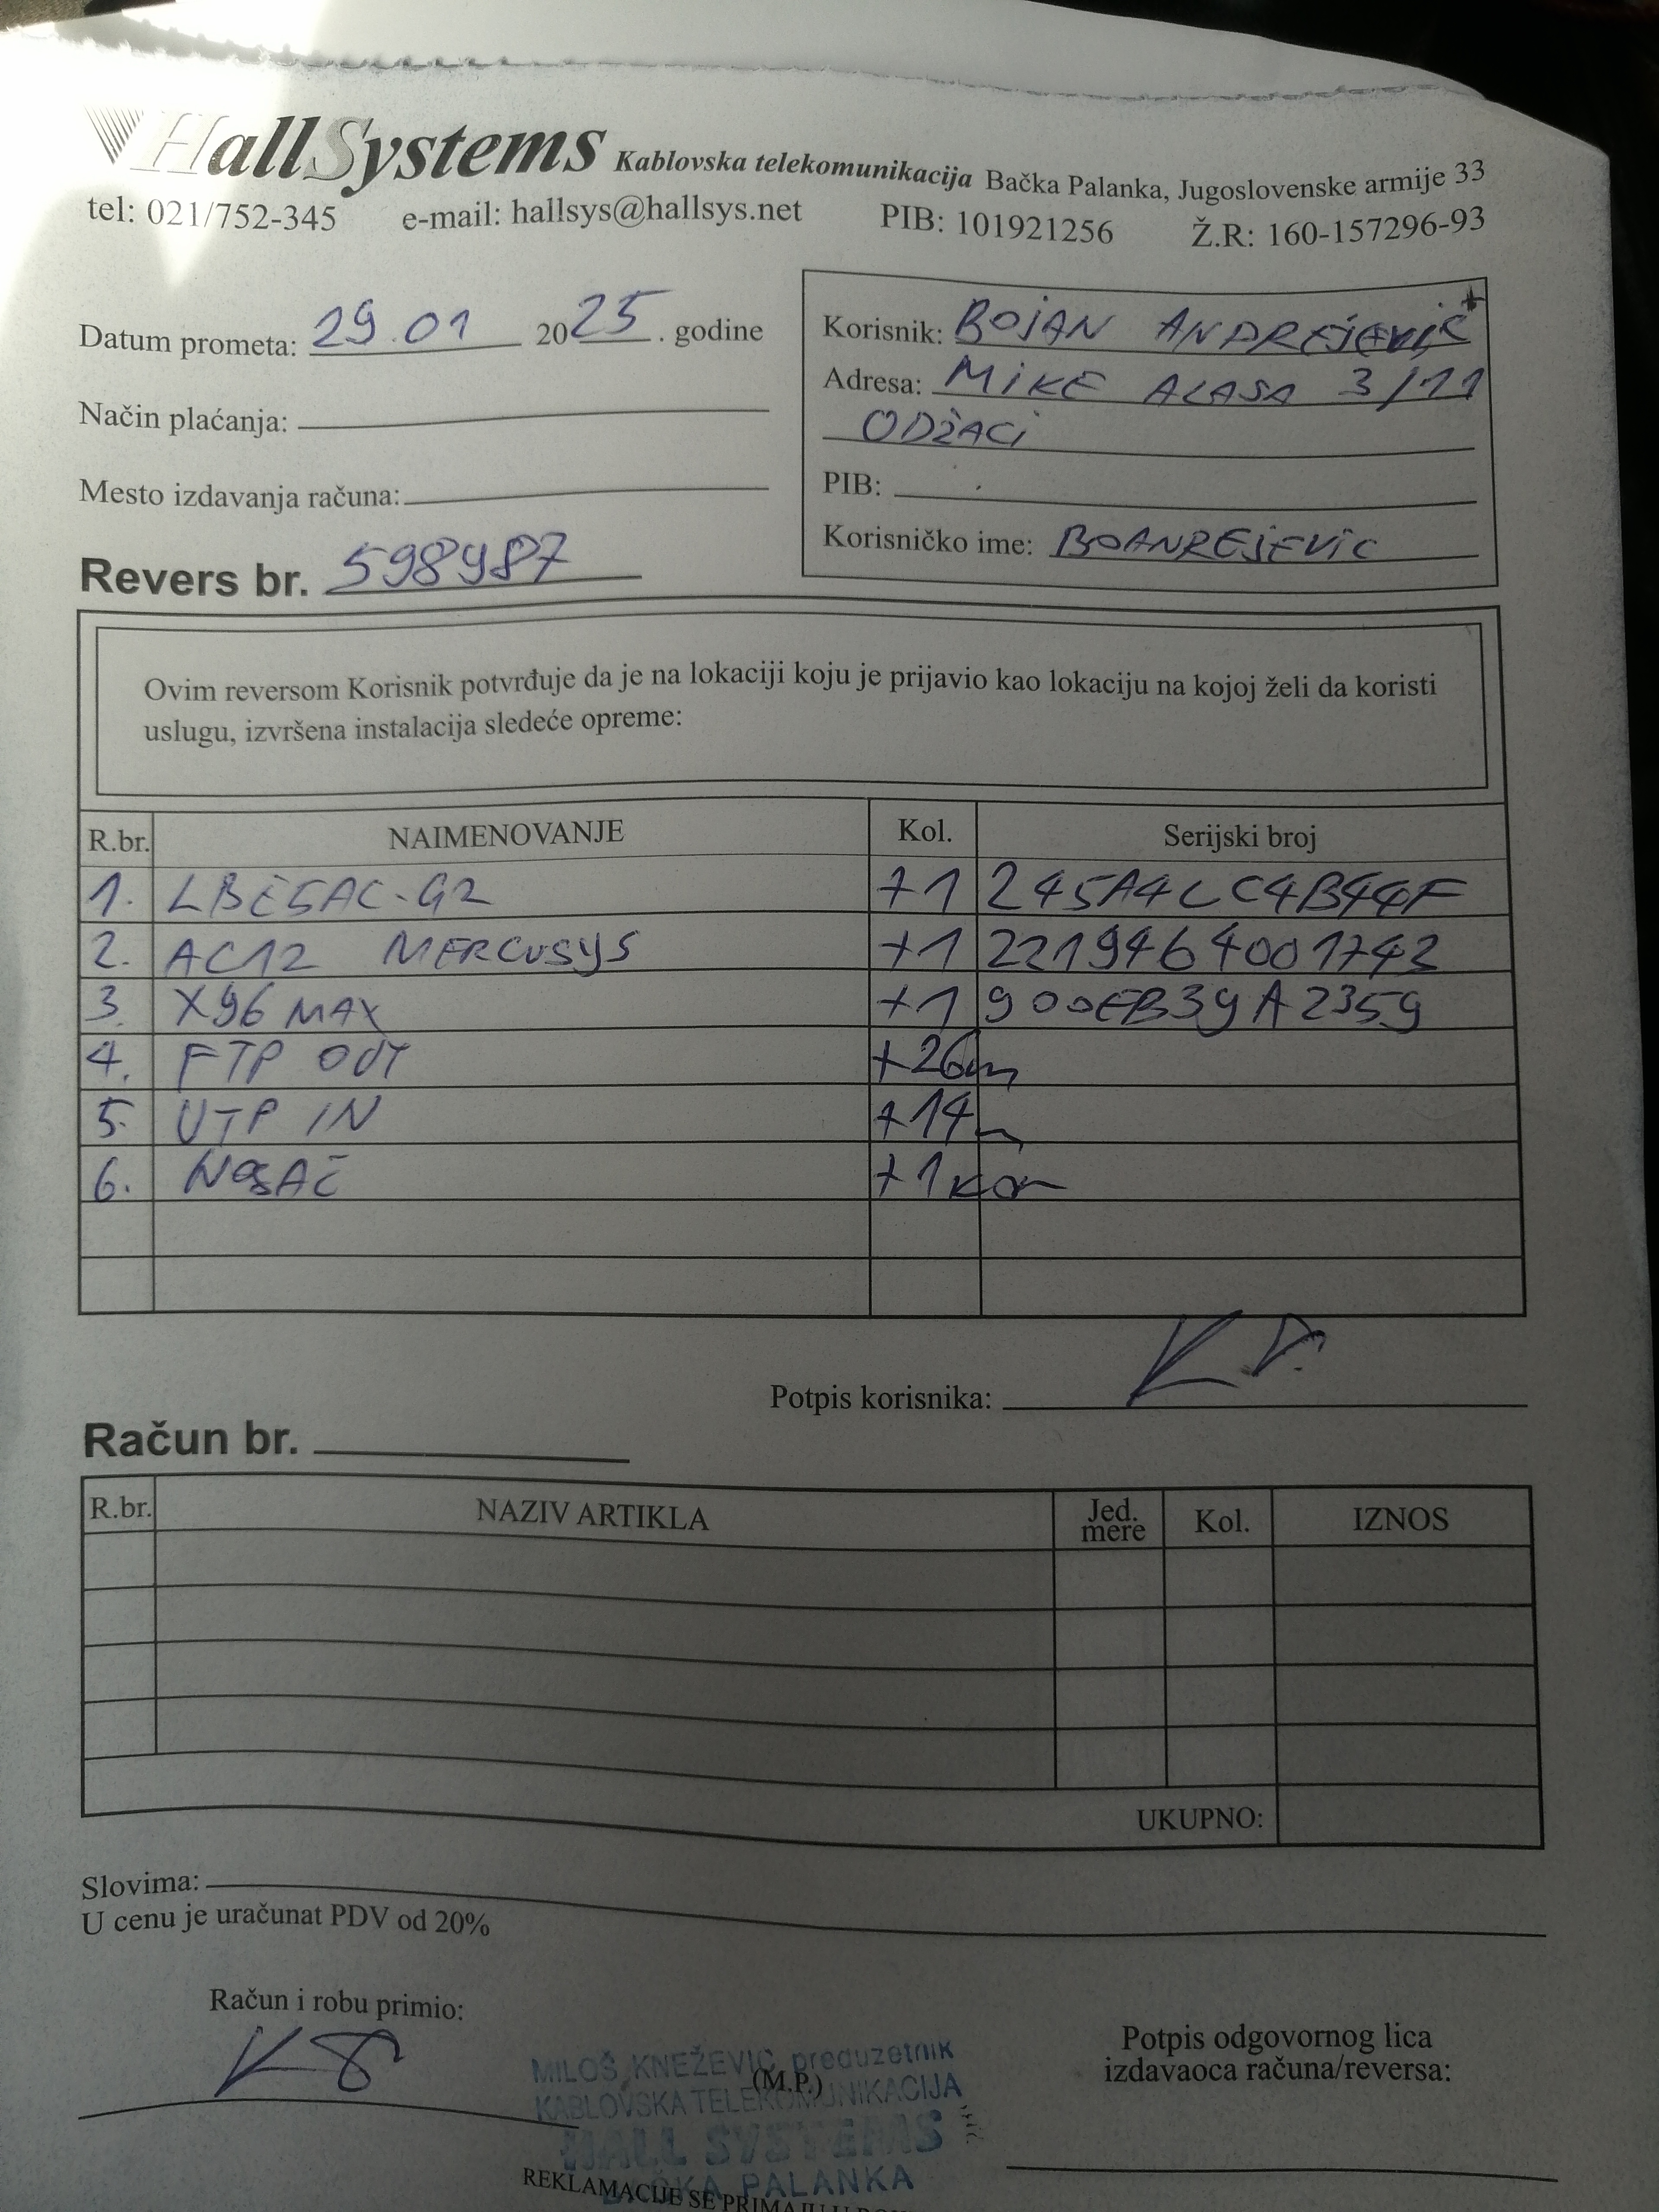 HallSystems Kablovska telekomunikacija Bačka Palanka, Jugoslovenske armije 33
tel: 021/752-345 e-mail: hallsys@hallsys.net PIB: 101921256 Ž.R: 160-157296-93
Datum prometa: 29.01 2025. godine
Način plaćanja:
Mesto izdavanja računa:
Korisnik: BOJAN ANDREJEVIĆ
Adresa: MIKE ALASA 3/11
ODŽACI
PIB:
Korisničko ime: BOANREJEVIC
Revers br. 598987
Ovim reversom Korisnik potvrđuje da je na lokaciji koju je prijavio kao lokaciju na kojoj želi da koristi
uslugu, izvršena instalacija sledeće opreme:
R.br. NAIMENOVANJE Kol. Serijski broj
1. LBE5AC-G2 +1 245A4CC4B44F
2. AC12 MERCUSYS +1 2219464001743
3. X96 MAX +1 900EB39A2359
4. FTP OUT +26m
5. UTP IN +14m
6. NOSAČ +1kom
Potpis korisnika:
Račun br.
R.br. NAZIV ARTIKLA Jed. mere Kol. IZNOS
UKUPNO:
Slovima:
U cenu je uračunat PDV od 20%
Račun i robu primio:
Potpis odgovornog lica
izdavaoca računa/reversa:
MILOŠ KNEŽEVIĆ, preduzetnik
(M.P.)
KABLOVSKA TELEKOMUNIKACIJA
HALL SYSTEMS
BAČKA PALANKA
REKLAMACIJE SE PRIMAJU U